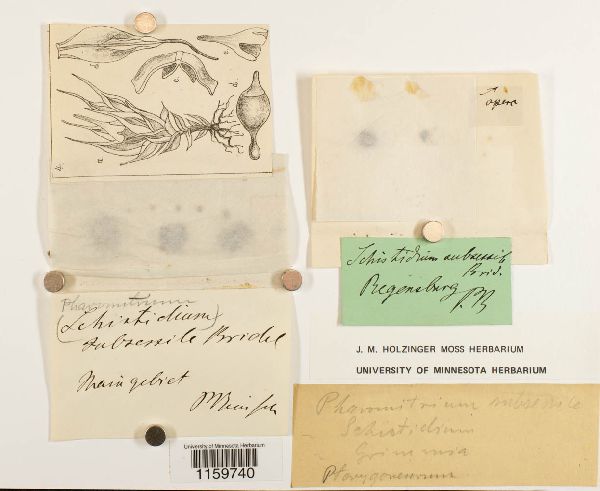 a.
b.
c.
d.
a.
4.
opera
Schistidium subsessile
Brid.
Regensburg
Pharomitrium
(Schistidium)
subsessile Bridel
Maingebiet
J. M. HOLZINGER MOSS HERBARIUM
UNIVERSITY OF MINNESOTA HERBARIUM
University of Minnesota Herbarium
1159740
Pharomitrium subsessile
Schistidium
Grimmia
Pterygoneurum